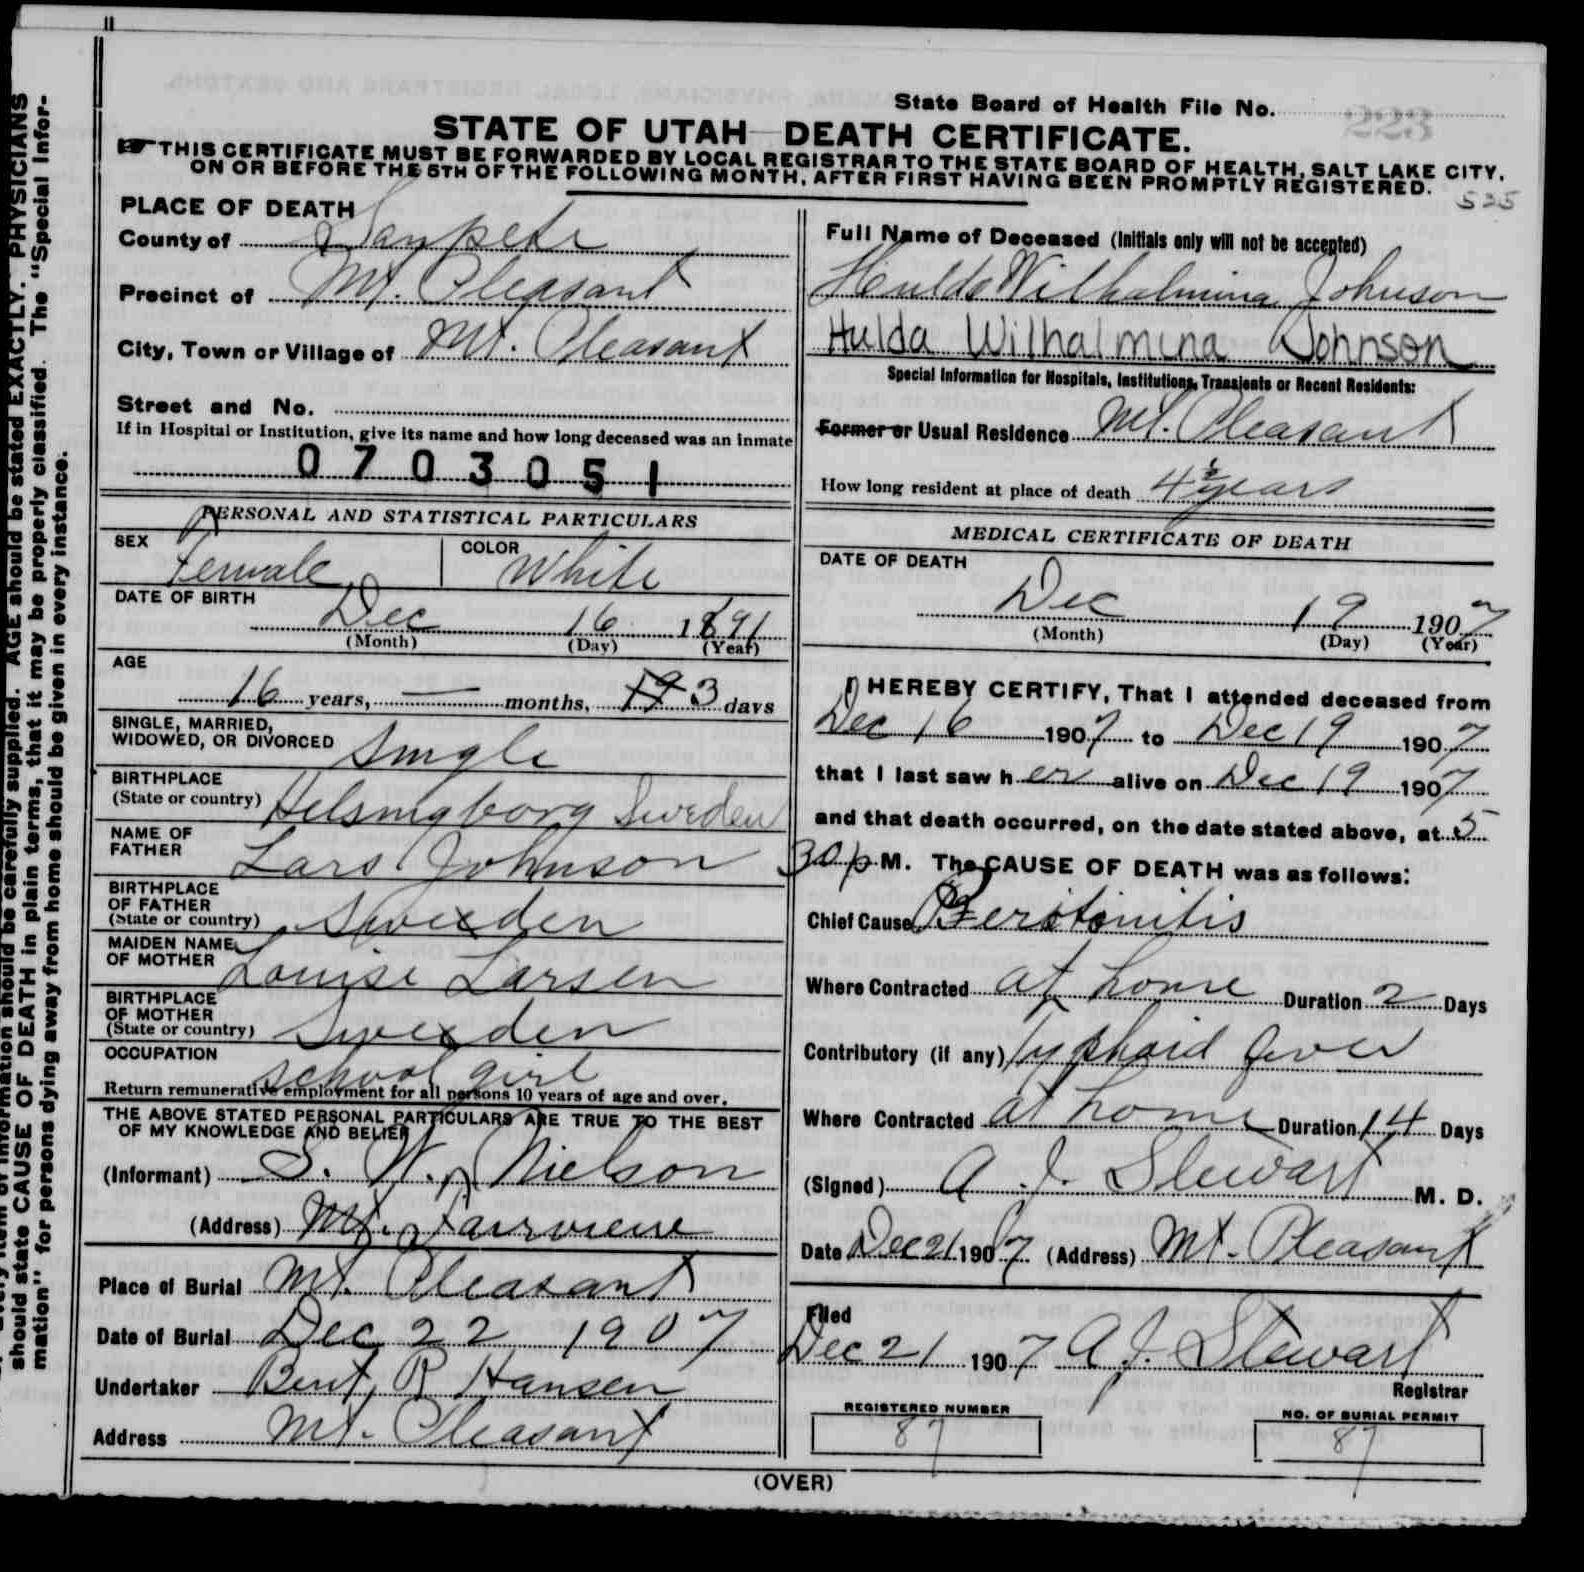 State Board of Health File No.
223
STATE OF UTAH DEATH CERTIFICATE.
THIS CERTIFICATE MUST BE FORWARDED BY LOCAL REGISTRAR TO THE STATE BOARD OF HEALTH, SALT LAKE CITY,
ON OR BEFORE THE 5TH OF THE FOLLOWING MONTH, AFTER FIRST HAVING BEEN PROMPTLY REGISTERED.
525
PLACE OF DEATH
County of Sanpete
Precinct of Mt. Pleasant
City, Town or Village of Mt. Pleasant
Street and No.
If in Hospital or Institution, give its name and how long deceased was an inmate
0703051
PERSONAL AND STATISTICAL PARTICULARS
SEX Female COLOR White
DATE OF BIRTH Dec 16 1891
(Month) (Day) (Year)
AGE
16 years, — months, 3 days
SINGLE, MARRIED,
WIDOWED, OR DIVORCED Single
BIRTHPLACE
(State or country) Helsingborg Sweden
NAME OF
FATHER Lars Johnson
BIRTHPLACE
OF FATHER
(State or country) Sweden
MAIDEN NAME
OF MOTHER Louise Larsen
BIRTHPLACE
OF MOTHER
(State or country) Sweden
OCCUPATION school girl
Return remunerative employment for all persons 10 years of age and over.
THE ABOVE STATED PERSONAL PARTICULARS ARE TRUE TO THE BEST
OF MY KNOWLEDGE AND BELIEF
(Informant) S. W. Nielson
(Address) Fairview
Place of Burial Mt. Pleasant
Date of Burial Dec 22 1907
Undertaker Bent R Hansen
Address Mt. Pleasant
Full Name of Deceased (Initials only will not be accepted)
Hulda Wilhalmina Johnson
Hulda Wilhalmina Johnson
Special Information for Hospitals, Institutions, Transients or Recent Residents:
Former or Usual Residence Mt. Pleasant
How long resident at place of death 4½ years
MEDICAL CERTIFICATE OF DEATH
DATE OF DEATH
Dec 19 1907
(Month) (Day) (Year)
I HEREBY CERTIFY, That I attended deceased from
Dec 16 1907 to Dec 19 1907
that I last saw her alive on Dec 19 1907
and that death occurred, on the date stated above, at 5
30 p M. The CAUSE OF DEATH was as follows:
Chief Cause Peritonitis
Where Contracted at home Duration 2 Days
Contributory (if any) Typhoid fever
Where Contracted at home Duration 14 Days
(Signed) A. J. Stewart M. D.
Date Dec 21 1907 (Address) Mt. Pleasant
Filed
Dec 21 1907 A J. Stewart
Registrar
REGISTERED NUMBER
87
NO. OF BURIAL PERMIT
87
(OVER)
information should be carefully supplied. AGE should be stated EXACTLY. PHYSICIANS
should state CAUSE OF DEATH in plain terms, that it may be properly classified. The "Special Infor-
mation" for persons dying away from home should be given in every instance.